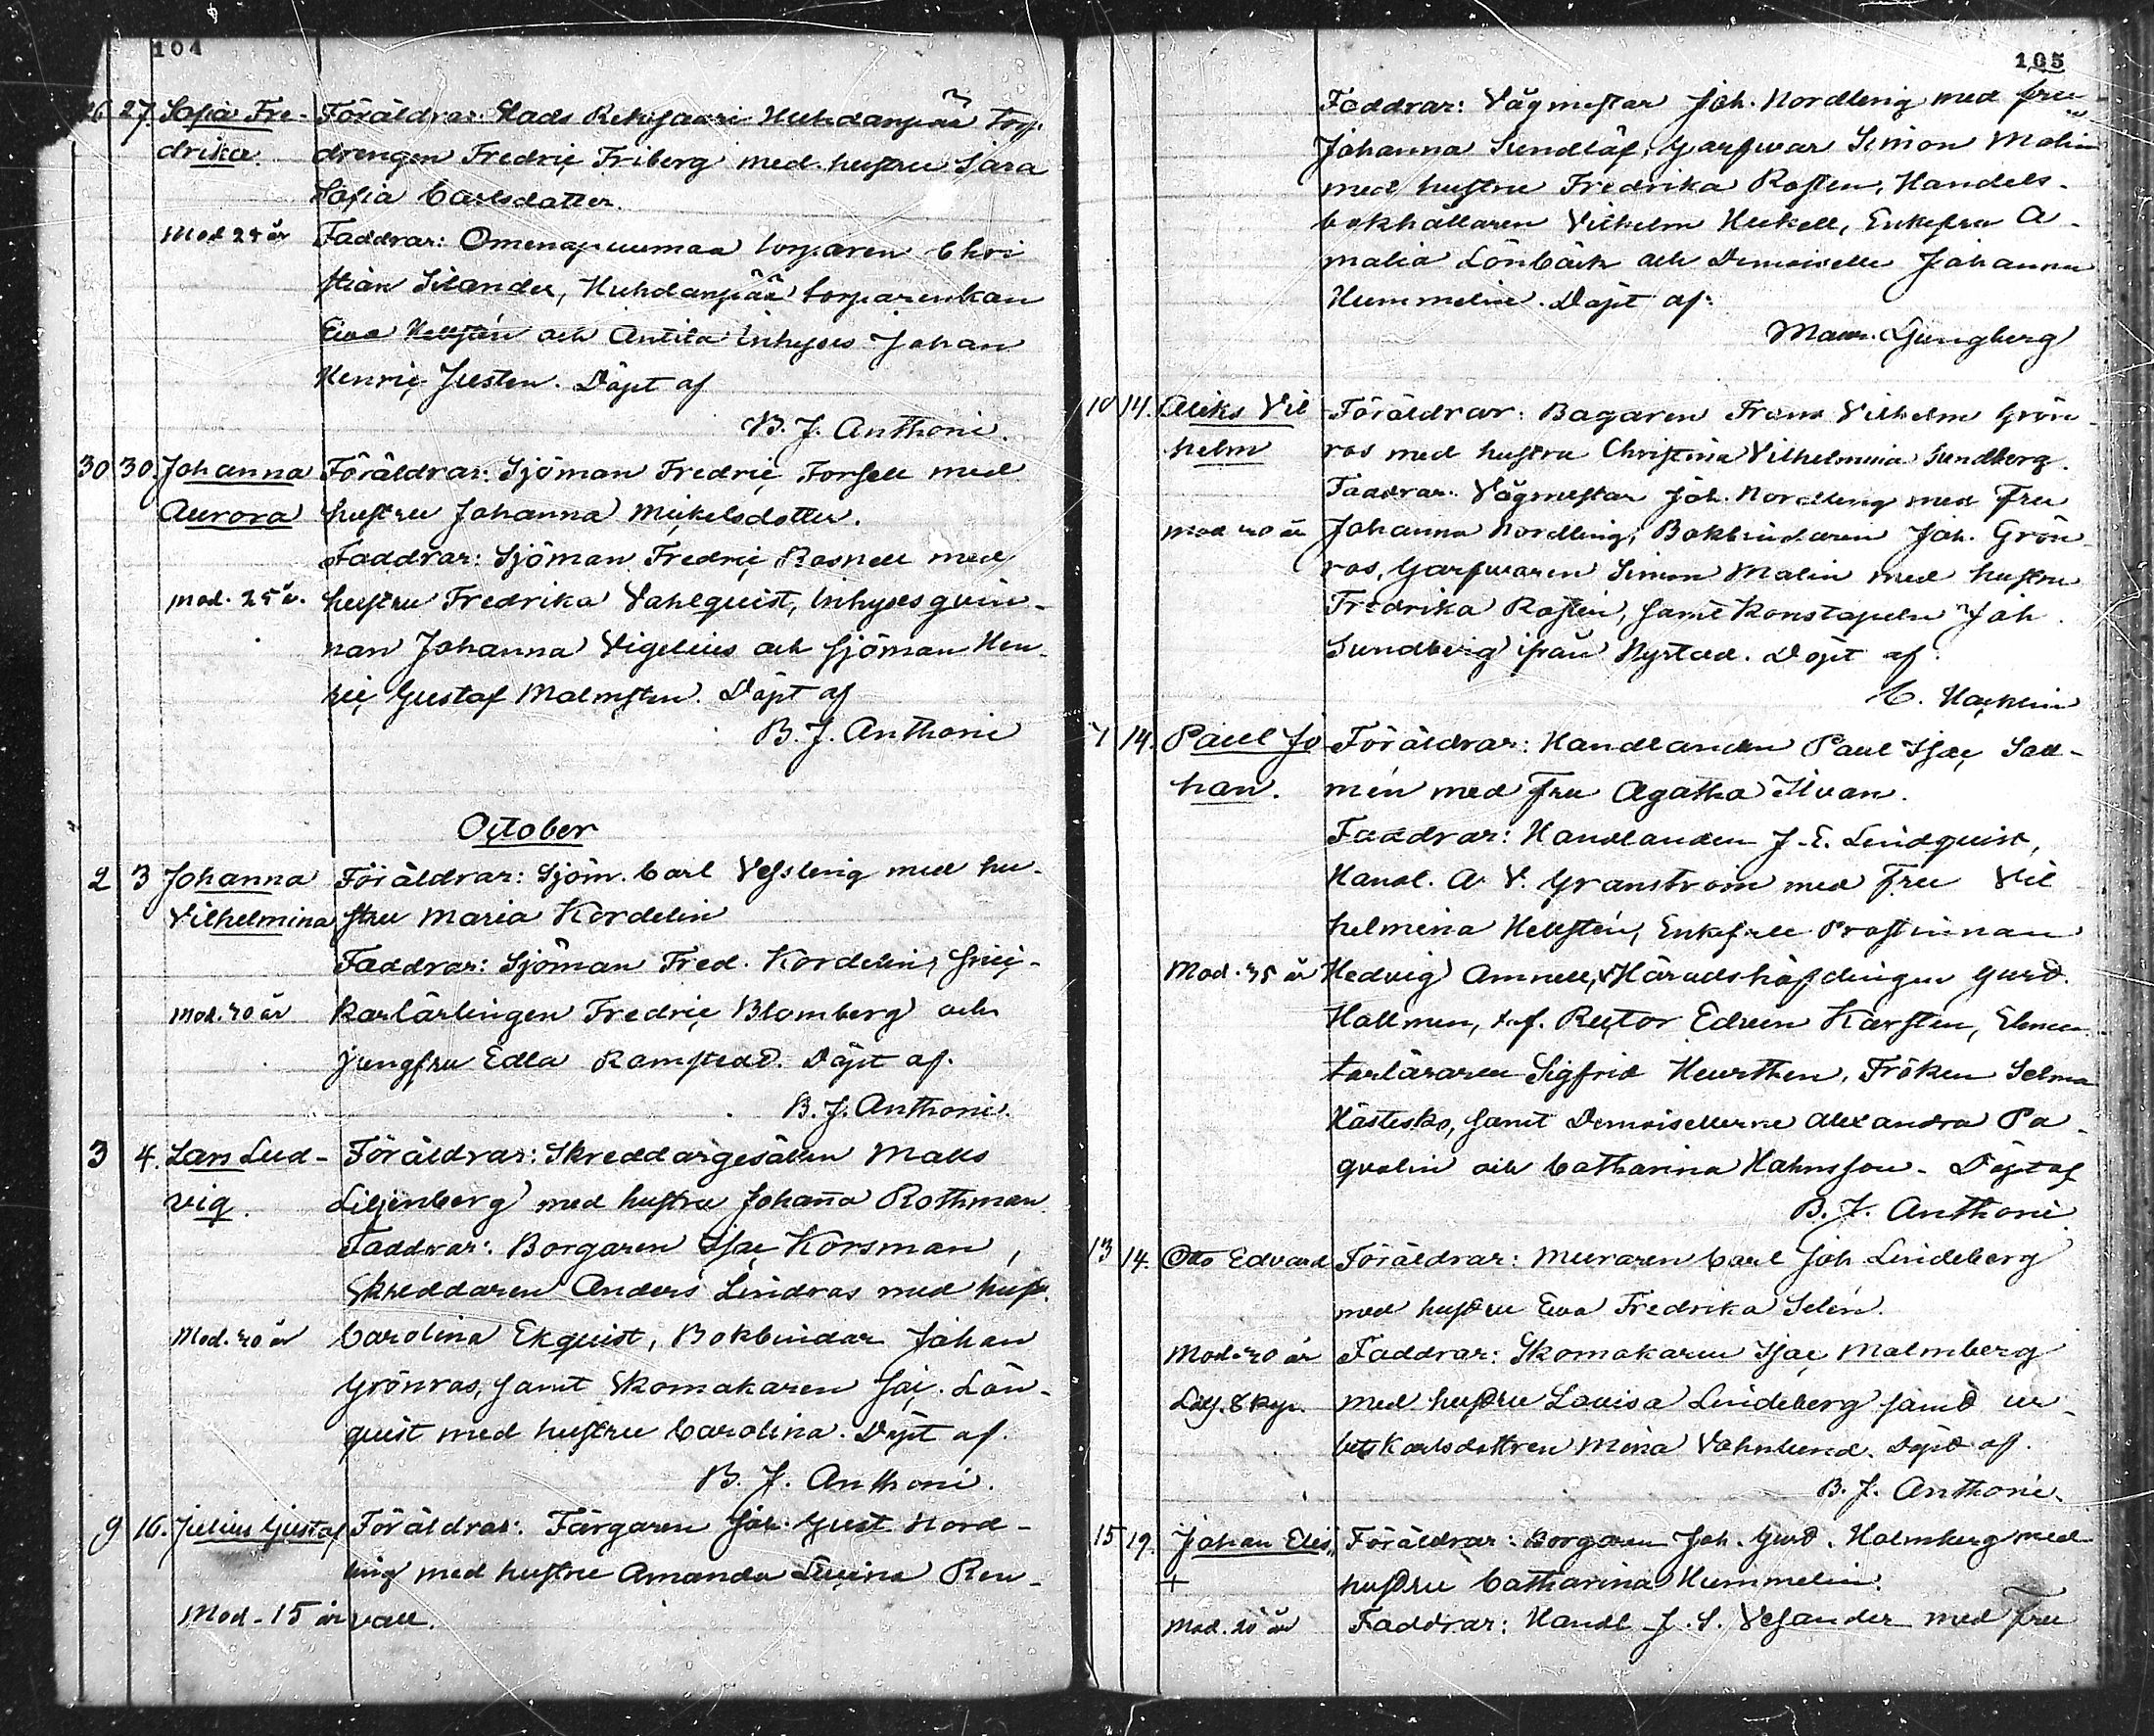 104
26 27. Sofia Fre- Föräldrar: Stads Reksaari Huhdanpää torp.
drika. drengen Fredric Friberg med hustru Sara
Sofia Carlsdotter.
Mod 24 år Faddrar: Omenapuumaa torparen Chri
stian Silander, Huhdanpää torparenkan
Eva Hellstén och Antila inhyses Johan
Henric Justen. Döpt af
B. J. Anthoni.
30 30. Johanna Föräldrar: Sjöman Fredric Forsell med
Aurora hustru Johanna Mickelsdotter.
Faddrar: Sjöman Fredric Rosnell med
mod. 25 å. hustru Fredrika Vahlquist, inhyses qvin-
nan Johanna Vigelius och sjöman Hen-
ric Gustaf Malmsten. Döpt af
B. J. Anthoni
October
2 3 Johanna Föräldrar: Sjöm. Carl Vessling med hu-
Vilhelmina stru Maria Kordelin
Faddrar: Sjöman Fred. Kordelin, snic-
mod. 20 år karlärlingen Fredric Blomberg och
jungfru Edla Ramstedt. Döpt af.
B. J. Anthoni.
3 4. Lars Lud- Föräldrar: Skreddargesällen Matts
vig. Liljenberg med hustru Johanna Rothman.
Faddrar: Borgaren Isac Korsman,
Skreddaren Anders Lindros med hust.
Mod. 20 år Carolina Ekquist, Bokbindar Johan
Grönros, samt Skomakaren Isac. Lön-
quist med hustru Carolina. Döpt af.
B. J. Anthoni.
9 16. Julius Gustaf Föräldrar: Färgaren Joh. Gust. Nord-
ling med hustru Amanda Lucina Ren-
Mod. 15 år vall.
105
Faddrar: Vågmestar Joh. Nordling med fru
Johanna Sundlöf, Garfvar Simon Malin
med hustru Fredrika Rosten, Handels-
bokhållaren Vilhelm Heikell, Enkefru A-
malia Lönbäck och Demoiselle Johanna
Hummelin. Döpt af:
Maur. Ljungberg
10 14. Aleks Vil- Föräldrar: Bagaren Frans Vilhelm Grön-
helm ros med hustru Christina Vilhelmina Sundberg.
Faddrar: Vågmestar Joh. Nordling med Fru
mod 20 år Johanna Nordling, Bokbindaren Joh. Grön-
ros, Garfvaren Simon Malin med hustru
Fredrika Rosten, samt Konstapeln Joh.
Sundberg ifrån Nystad. Döpt af.
C. Hacklin
7 14. Paul Jo- Föräldrar: Handlanden Paul Isac Sall-
han. mén med Fru Agatha Ilvan.
Faddrar: Handlanden J. E. Lindquist,
Handl. A V. Granström med Fru Vil
helmina Hellstén, Enkefru Prostinnan
Mod. 35 år Hedvig Amnell, V Häradshöfdingen Gust.
Hallmen, t.f. Rector Edvin Karsten, Elemen-
tarläraren Sigfrid Heurthen, Fröken Selma
Hästesko, samt Demoisellerne Alexandra Pa-
qvalin och Catharina Hahnsson. Döpt af
B. J. Anthoni
13 14. Otto Edvard Föräldrar: Muraren Carl Joh Lindeberg
med hustru Eva Fredrika Selén.
Mod. 20 år Faddrar: Skomakaren Isac Malmberg
med hustru Lovisa Lindeberg samt ar-
betskarlsdottren Mina Vahnlund. Döpt af.
B. J. Anthoni.
15 19. Johan Elis, Föräldrar: Borgaren Joh. Gust. Holmberg med
+ hustru Catharina Hummelin.
Mod. 20 år Faddrar: Handl J. S. Vesander med Fru